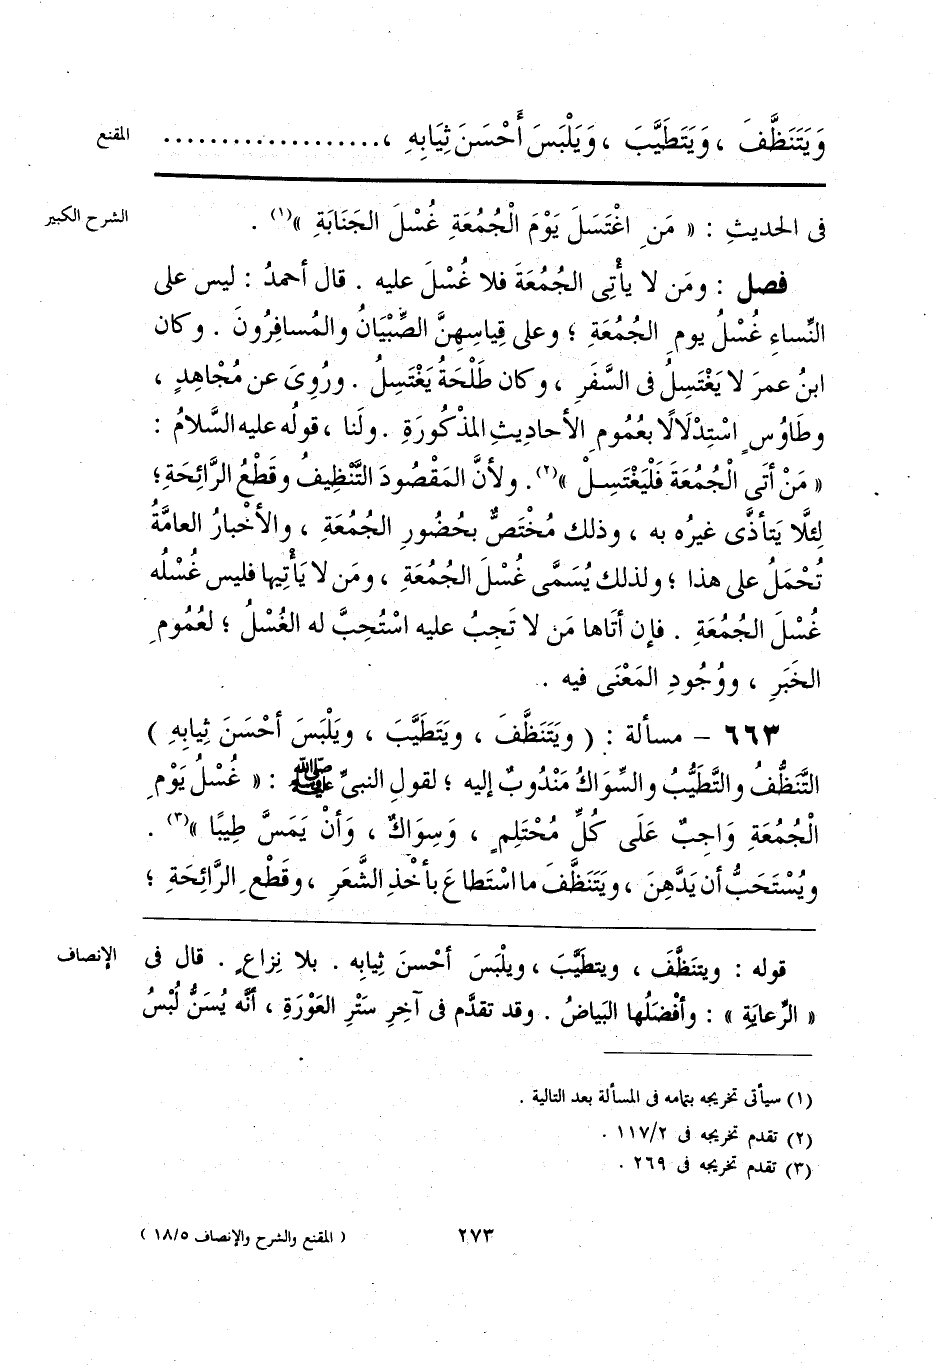 وَيَتَنَظَّفَ ، وَيَتَطَيَّبَ ، وَيَلْبَسَ أَحْسَنَ ثِيَابِهِ ، ................... المقنع
فى الحديثِ : « مَنِ اغْتَسَلَ يَوْمَ الْجُمُعَةِ غُسْلَ الجَنَابَةِ »(١) . الشرح الكبير
فصل : ومَن لا يأْتِى الجُمُعَةَ فلا غُسْلَ عليه . قال أحمدُ : ليس على
النِّساءِ غُسْلُ يومِ الجُمُعَةِ ؛ وعلى قِياسِهِنَّ الصِّبْيَانُ والمُسافِرُونَ . وكان
ابنُ عمرَ لا يَغْتَسِلُ فى السَّفَرِ ، وكان طَلْحَةُ يَغْتَسِلُ . ورُوِىَ عن مُجْاهِدٍ ،
وطَاوُسٍ اسْتِدْلَالًا بعُمُومِ الأحادِيثِ المَذْكُورَةِ . ولَنا ، قولُه عليه السَّلامُ :
« مَنْ أتَى الْجُمُعَةَ فَلْيَغْتَسِلْ »(٢). ولأنَّ المَقْصُودَ التَّنْظِيفُ وقَطْعُ الرَّائِحَةِ ؛
لِئلَّا يَتأذَّى غيرُه به ، وذلك مُخْتَصٌّ بحُضُورِ الجُمُعَةِ ، والأخْبارُ العامَّةُ
تُحْمَلُ على هذا ؛ ولذلك يُسَمَّى غُسْلَ الجُمُعَةِ ، ومَن لا يَأْتِيها فليس غُسْلُه
غُسْلَ الجُمُعَةِ . فإن أتَاها مَن لا تَجِبُ عليه اسْتُحِبَّ له الغُسْلُ ؛ لعُمُومِ
الخَبَرِ ، ووُجُودِ المَعْنَى فيه .
٦٦٣ – مسألة : ( ويَتَنَظَّفَ ، ويَتَطَيَّبَ ، ويَلْبَسَ أحْسَنَ ثِيابِهِ )
التَّنَظُّفُ والتَّطَيُّبُ والسِّوَاكُ مَنْدُوبٌ إليه ؛ لقولِ النبىِّ ﷺ : « غُسْلُ يَوْمِ
الْجُمُعَةِ وَاجِبٌ عَلَى كُلِّ مُحْتَلِمٍ ، وَسِوَاكٌ ، وَأنْ يَمَسَّ طِيبًا »(٣) .
ويُسْتَحَبُّ أن يَدَّهِنَ ، ويَتَنَظَّفَ ما اسْتَطاعَ بأخْذِ الشَّعَرِ ، وقَطْعِ الرَّائِحَةِ ؛
قوله : ويتنَظَّفَ ، ويتطَيَّبَ ، ويلْبَسَ أحْسنَ ثِيابِه . بلا نِزاعٍ . قال فى الإنصاف
« الرِّعايَةِ » : وأفْضَلُها البَياضُ . وقد تقدَّم فى آخِرِ سَتْرِ العَوْرَةِ ، أنَّه يُسَنُّ لُبْسُ
(١) سيأتى تخريجه بتمامه فى المسألة بعد التالية .
(٢) تقدم تخريجه فى ١١٧/٢ .
(٣) تقدم تخريجه فى ٢٦٩ .
٢٧٣ ( المقنع والشرح والإنصاف ١٨/٥ )